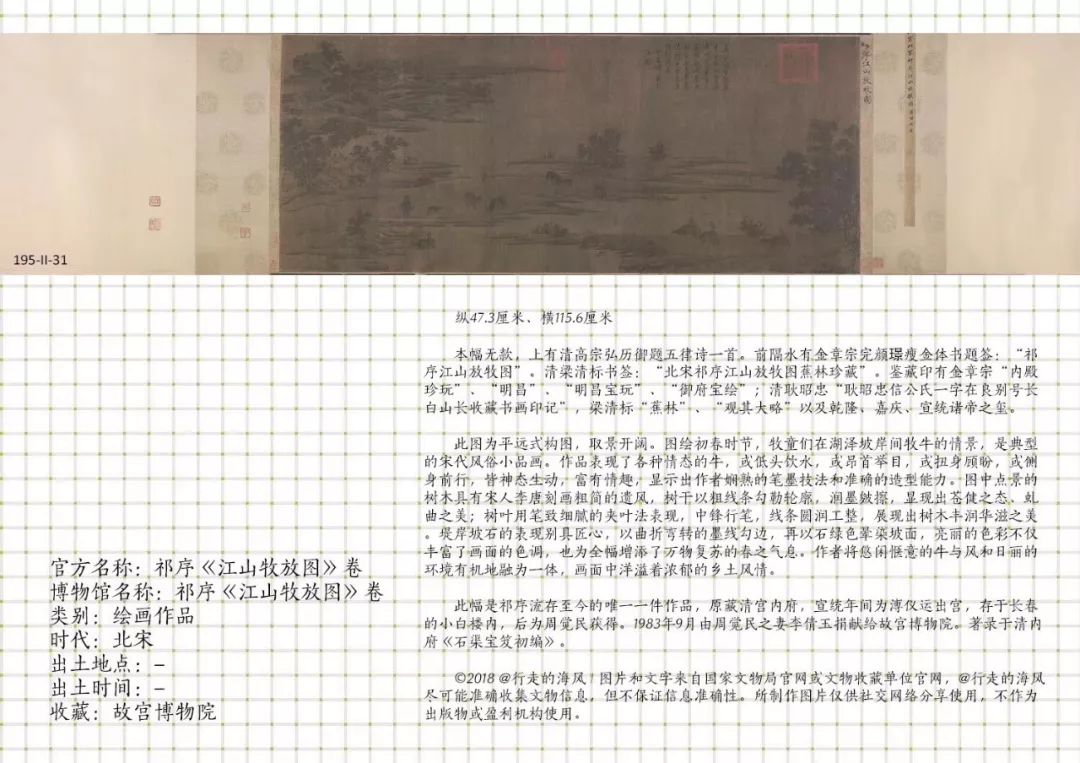 祁序江山放牧图
195-II-31
纵47.3厘米、横115.6厘米
本幅无款，上有清高宗弘历御题五律诗一首。前隔水有金章宗完颜璟瘦金体书题签：“祁
序江山放牧图”。清梁清标书签：“北宋祁序江山放牧图蕉林珍藏”。鉴藏印有金章宗“内殿
珍玩”、“明昌”、“明昌宝玩”、“御府宝绘”；清耿昭忠“耿昭忠信公氏一字在良别号长
白山长收藏书画印记”，梁清标“蕉林”、“观其大略”以及乾隆、嘉庆、宣统诸帝之玺。
此图为平远式构图，取景开阔。图绘初春时节，牧童们在湖泽坡岸间牧牛的情景，是典型
的宋代风俗小品画。作品表现了各种情态的牛，或低头饮水，或昂首举目，或扭身顾盼，或侧
身前行，皆神态生动，富有情趣，显示出作者娴熟的笔墨技法和准确的造型能力。图中点景的
树木具有宋人李唐刻画粗简的遗风，树干以粗线条勾勒轮廓，润墨皴擦，显现出苍健之态、虬
曲之美；树叶用笔致细腻的夹叶法表现，中锋行笔，线条圆润工整，展现出树木丰润华滋之美
。堤岸坡石的表现别具匠心，以曲折弯转的墨线勾边，再以石绿色晕染坡面，亮丽的色彩不仅
丰富了画面的色调，也为全幅增添了万物复苏的春之气息。作者将悠闲惬意的牛与风和日丽的
环境有机地融为一体，画面中洋溢着浓郁的乡土风情。
此幅是祁序流存至今的唯一一件作品，原藏清宫内府，宣统年间为溥仪运出宫，存于长春
的小白楼内，后为周觉民获得。1983年9月由周觉民之妻李倩玉捐献给故宫博物院。著录于清内
府《石渠宝笈初编》。
©2018 @行走的海风 图片和文字来自国家文物局官网或文物收藏单位官网，@行走的海风
尽可能准确收集文物信息，但不保证信息准确性。所制作图片仅供社交网络分享使用，不作为
出版物或盈利机构使用。
官方名称：祁序《江山牧放图》卷
博物馆名称：祁序《江山牧放图》卷
类别：绘画作品
时代：北宋
出土地点：-
出土时间：-
收藏：故宫博物院